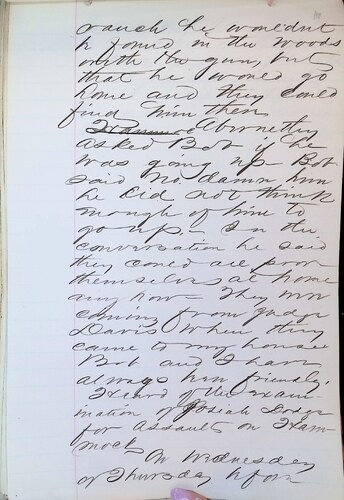 ranch he wouldnt
be found in the woods
with the gun, but
that he would go
home and they could
find him then
Abernethy
asked Bob if he
was going up - Bob
said no damn him
he did not think
enough of him to
go up - In the
conversation he said
they could all
themselves at home
any how - They were
coming from Judge
Davis when they
came to my house
Bob and I have
always been friendly.
Heard of the exam-
ination of Josiah Dodge
for assault on Ham-
mock On Wednesday
or Thursday before